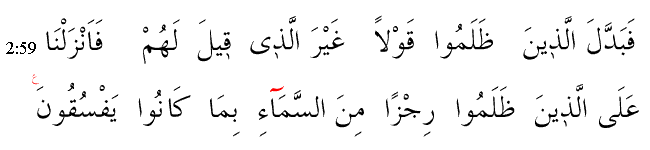 2:59 فَبَدَّلَ الَّذٖينَ ظَلَمُوا قَوْلاً غَيْرَ الَّذٖى قٖيلَ لَهُمْ فَاَنْزَلْنَا
عَلَى الَّذٖينَ ظَلَمُوا رِجْزًا مِنَ السَّمَٓاءِ بِمَا كَانُوا يَفْسُقُونَ ع